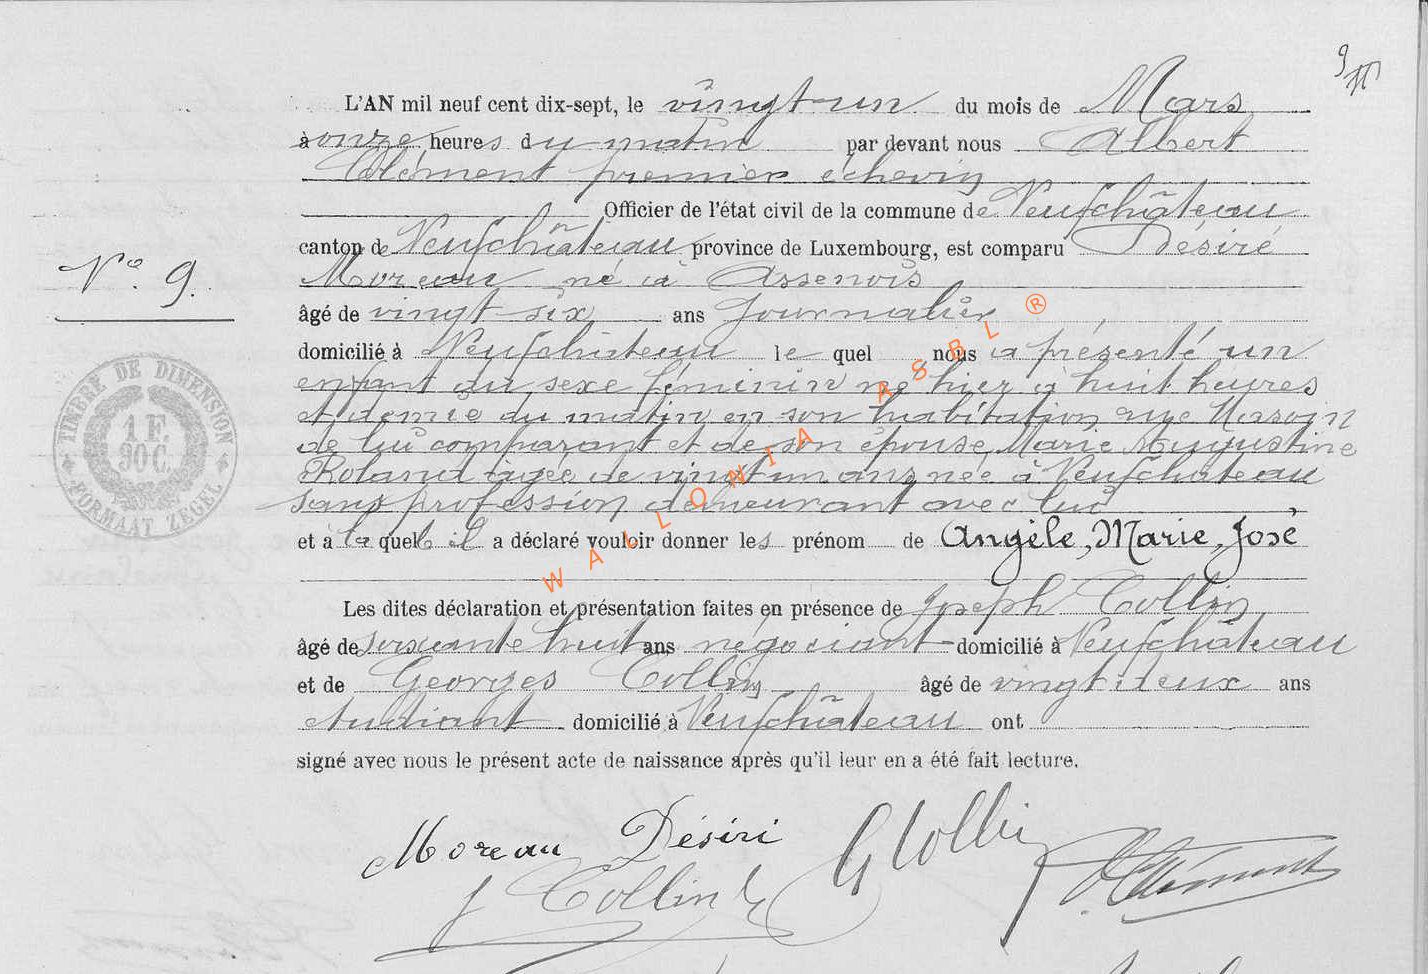 9
L'AN mil neuf cent dix-sept, le vingt-un du mois de Mars
à onze heures du matin par devant nous Albert
Clément premier échevin
Officier de l'état civil de la commune de Neufchâteau
canton de Neufchâteau province de Luxembourg, est comparu Désiré
Moreau né à Assenois
N° 9.
âgé de vingt six ans Journalier
domicilié à Neufchâteau le quel nous a présenté un
enfant du sexe féminin né hier à huit heures
et demie du matin en son habitation rue
de lui comparant et de son épouse Marie Augustine
Roland agée de vingt un ans née à Neufchateau
sans profession demeurant avec lui
et à la quelle il a déclaré vouloir donner les prénom de Angèle, Marie, José
Les dites déclaration et présentation faites en présence de Joseph Collin
âgé de soixante huit ans négociant domicilié à Neufchâteau
et de Georges Collin âgé de vingt deux ans
étudiant domicilié à Neufchâteau ont
signé avec nous le présent acte de naissance après qu'il leur en a été fait lecture.
Moreau Désiri G Collin
J Collin Clément
TIMBRE DE DIMENSION
1 F.
90 C.
FORMAAT ZEGEL
WALLONIA ASBL ®